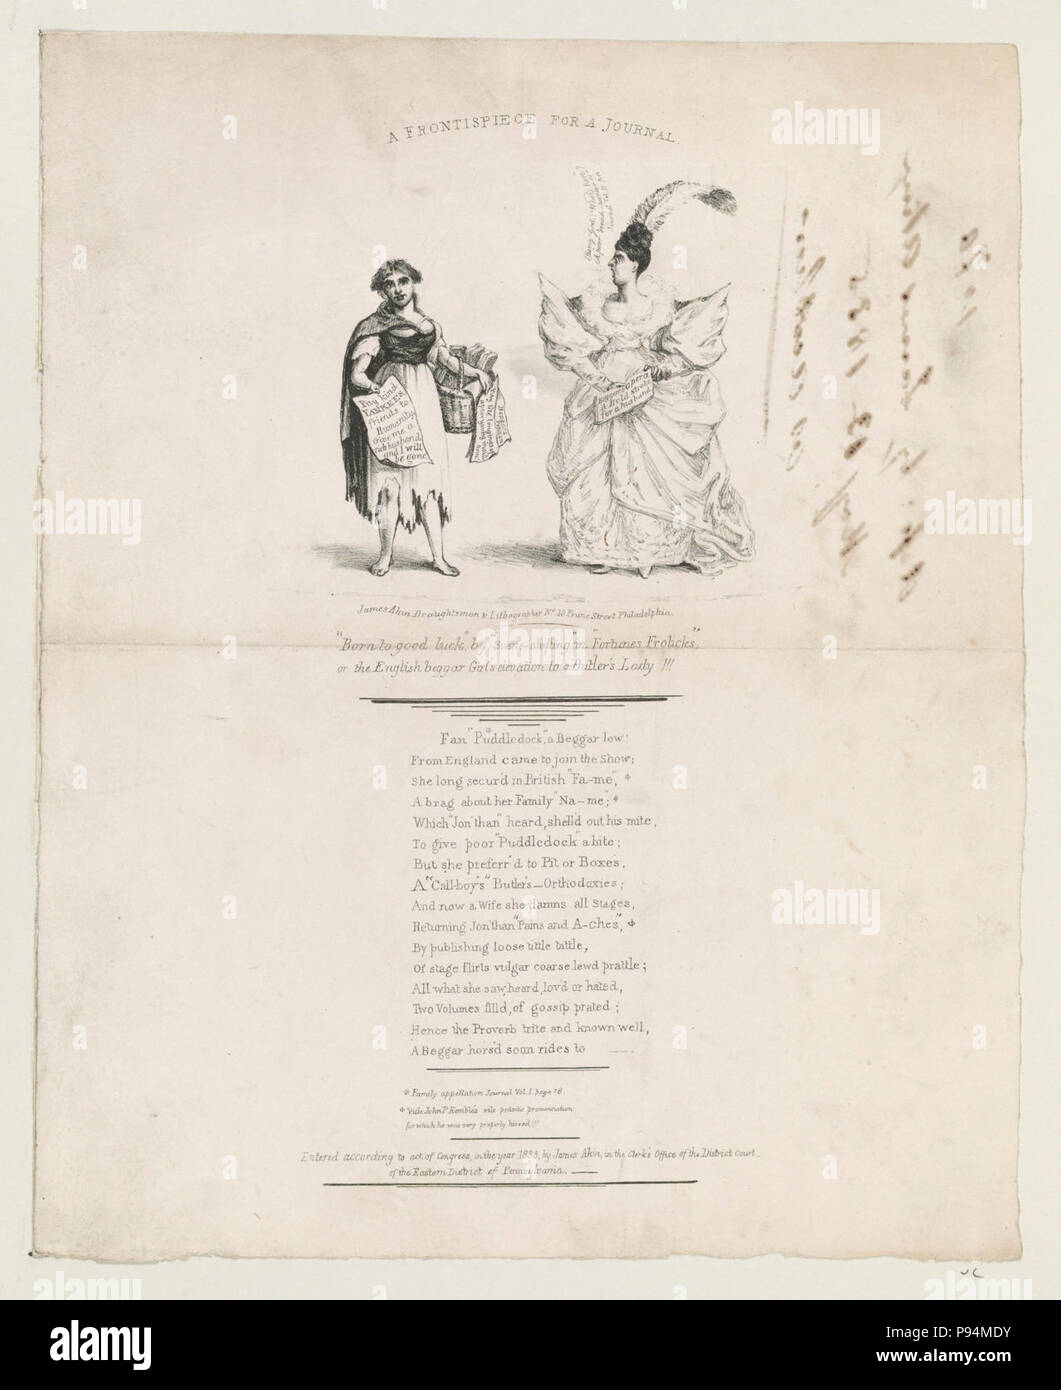 A FRONTISPIECE FOR A JOURNAL.
Pay kind
YANKEES
friends to
Humanity
Give me a
rich husband
and I will
be gone
opera
A bold Stroke
for a husband
James Akin Draughtsman & Lithographer No. 18 Prune Street Philadelphia.
"Born to good luck," by in "Fortunes Frolicks",
or the English beggar Girl's elevation to a Butler's Lady !!!
Fan "Puddledock", a Beggar low!
From England came to join the Show;
She long secur'd in British "Fa-me", *
A brag about her Family "Na-me"; *
Which "Jon'than" heard, shell'd out his mite,
To give poor "Puddledock" a bite;
But she preferr'd to Pit or Boxes,
A "Call-boy's" Butler's—Orthodoxies;
And now a Wife she damns all Stages,
Returning Jon'than "Pains and A-ches",
By publishing loose tittle tattle,
Of stage flirts vulgar coarse lewd prattle;
All what she saw, heard, lov'd or hated,
Two Volumes fill'd, of gossip prated;
Hence the Proverb trite and known well,
A Beggar hors'd soon rides to —.
* Family appellation Journal Vol. 1. page
Vide John P. Kemble's vile pedantic pronunciation
for which he was very properly hissed!!!
Entered according to act of Congress, in the year 1833, by James Akin, in the Clerk's Office of the District Court,
of the Eastern District of Pennsylvania.
a alamy stock photo
alamy
P94MDY
www.alamy.com